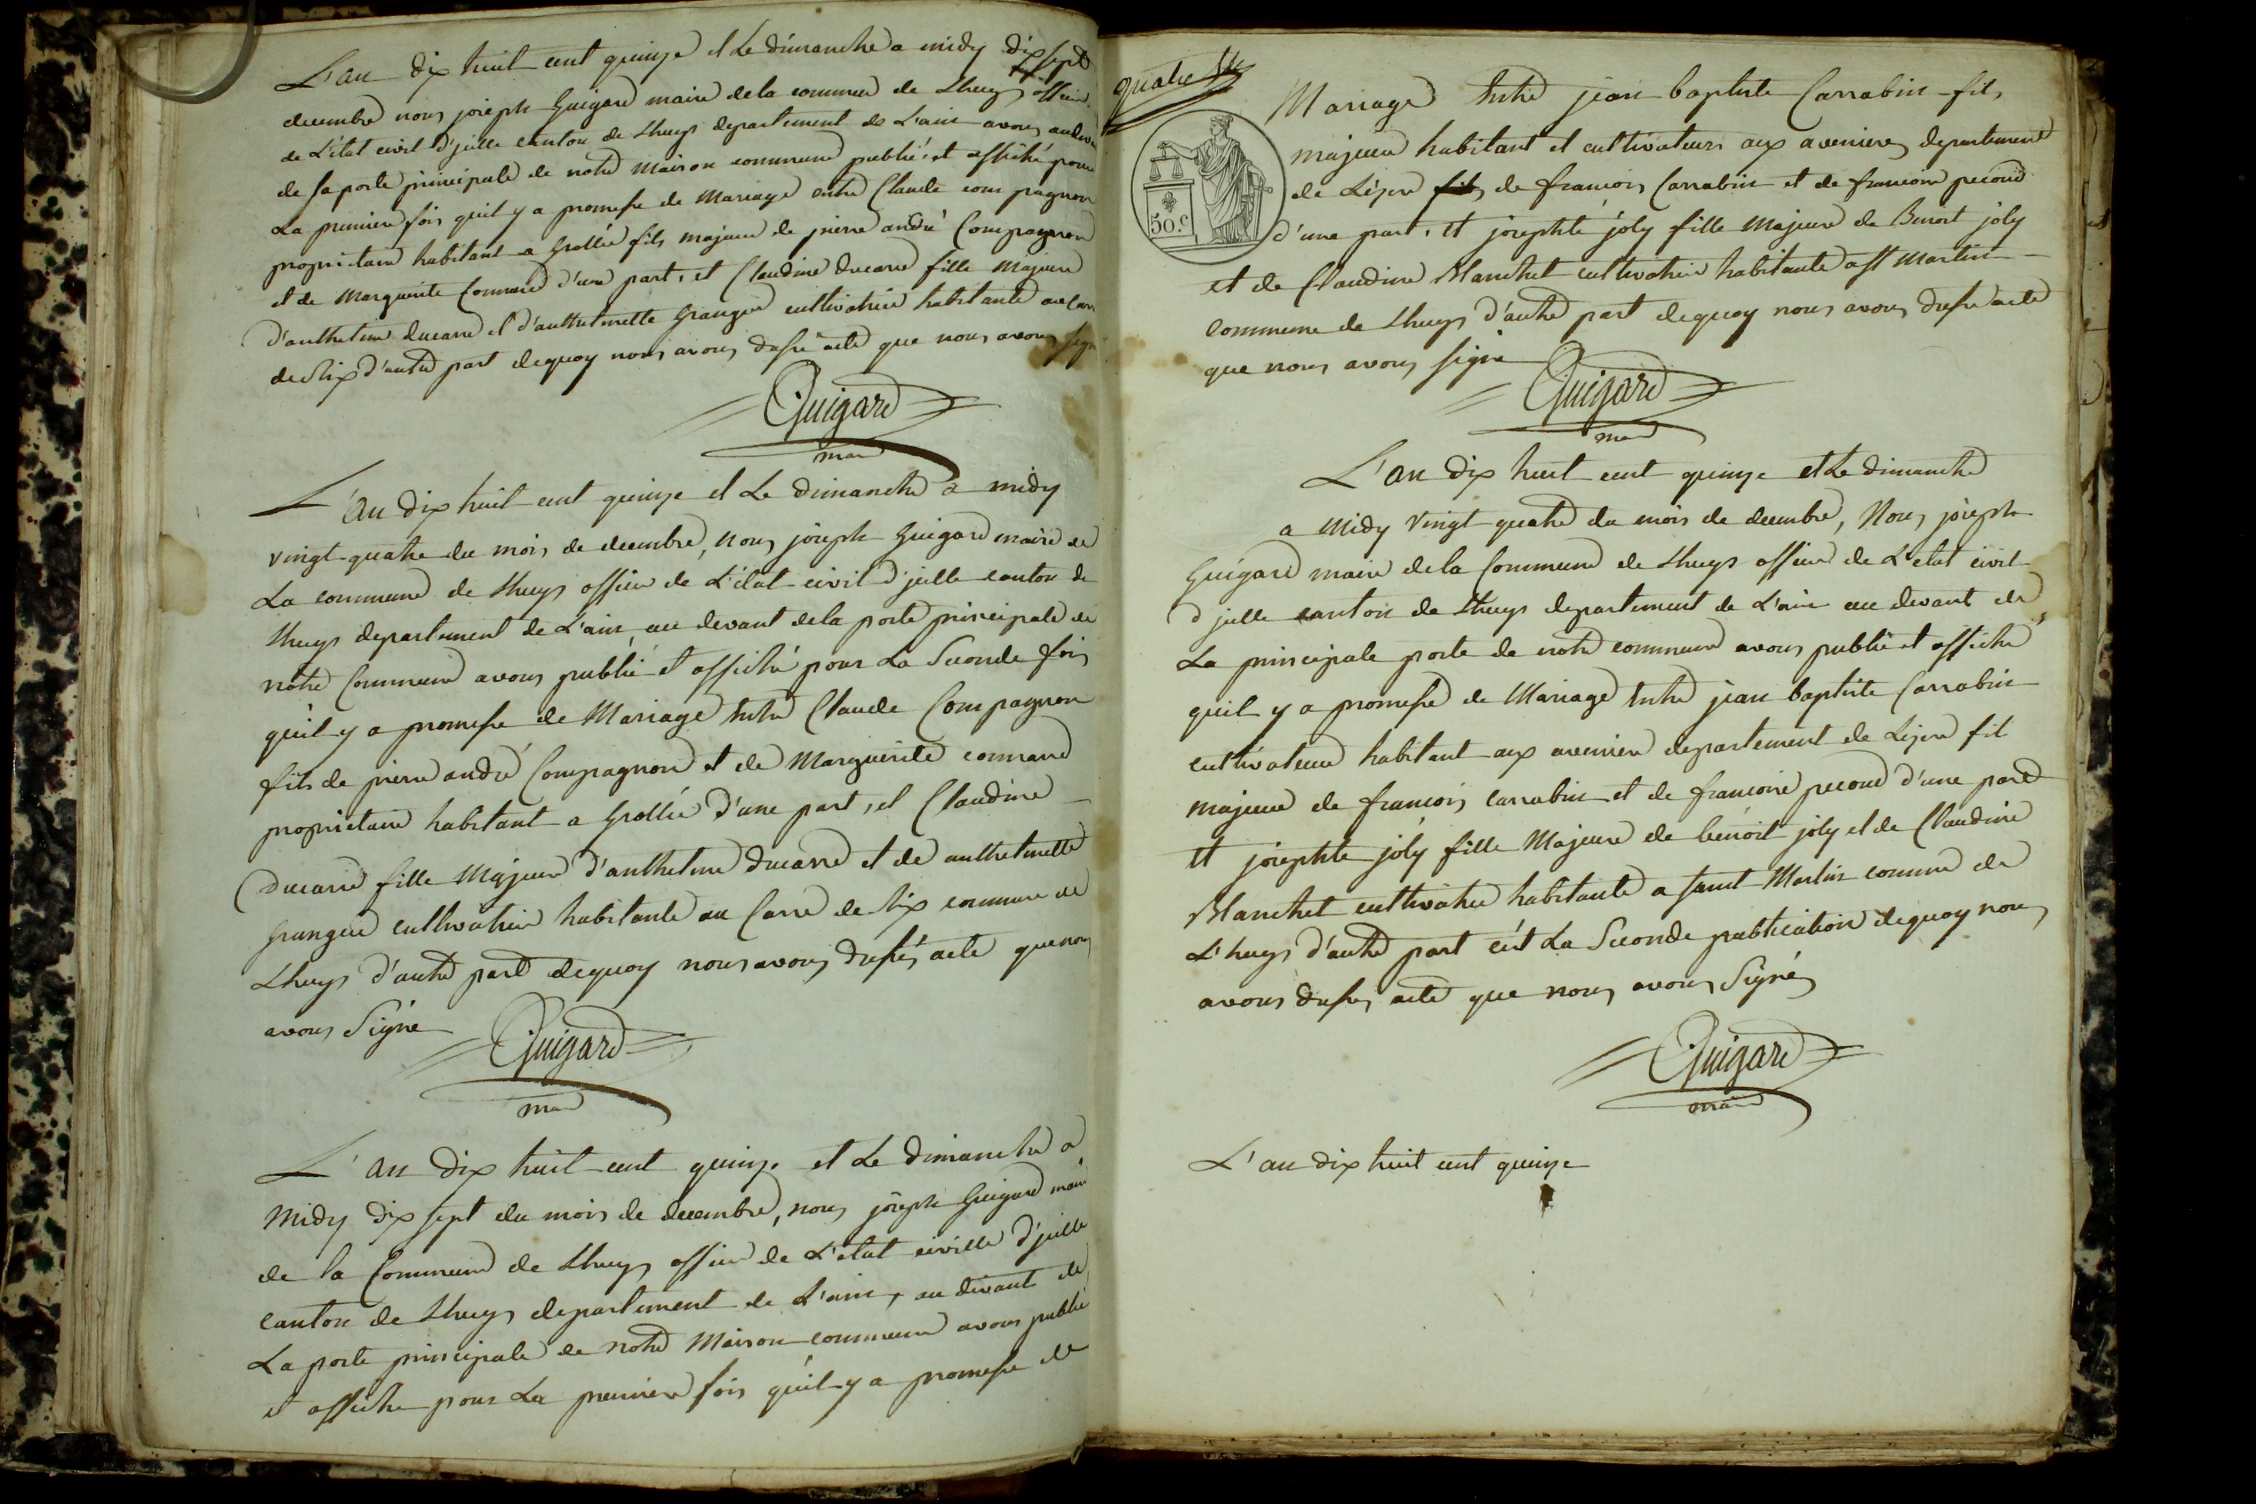 L'an dix huit cent quinze et Le dimanche a midy dix sept
decembre nous joseph Guigard maire de la commune de Lhuys officier
de L'état civil d'jcelle canton de Lhuys departement de L'ain avons audevant
de la porte principale de notre Maison commune publié et affiché pour
La premiere fois quil y a promesse de Mariage entre Claude compagnon
proprietaire habitant a Grollée fils majeur de pierre andré Compagnon
et de Marguerite Connard d'une part, et Claudine ducarre fille Majeure
d'anthelme ducarre et d'anthelmette Grangeu cultivatrice habitante au Carre
de Rix d'autre part dequoy nous avons dressé acte que nous avons signé
Guigard
maire
L'an dix huit cent quinze et Le dimanche a midy
vingt-quatre du mois de decembre, nous joseph Guigard maire de
La commune de Lhuys officier de L'état civil d'jcelle canton de
Lhuys departement de L'ain, au devant de la porte principale de
nôtre Commune avons publié et affiché pour La Seconde fois
qu'il y a promesse de Mariage Entre Claude Compagnon
fils de pierre andré Compagnon et de Marguerite connard
proprietaire habitant a Grollée d'une part, et Claudine
Ducarre fille Majeure d'anthelme ducarre et de anthelmette
Grangeu cultivatrice habitante au Carre de Rix commune de
Lhuys d'autre part dequoy nous avons dressés acte que nous
avons Signé
Guigard
maire
L'an dix huit cent quinze et Le dimanche a
Midy dix sept du mois de decembre, nous joseph Guigard maire
de la Commune de Lhuys officier de L'etat civille d'jcelle
canton de Lhuys departement de L'ain, au devant de
La porte principale de notre Maison commune avons publié
et affiché pour La premiere fois qu'il y a promesse de
quatre
50.c
Mariage Entre jean baptiste Carrabin fils
majeur habitant et cultivateurs aux avenieres departement
de Lizere fils de francois Carrabin et de francoise pecoud
d'une part, et josephte joly fille Majeure de Benoit joly
et de Claudine Blanchet cultivatrice habitante a St Martin
commune de Lhuys d'autre part dequoy nous avons dressé acte
que nous avons signé
Guigard
maire
L'an dix huit cent quinze et Le dimanche
a Midy vingt quatre du mois de decembre, Nous joseph
Guigard maire dela Commune de Lhuys officier de L'etat civil
d'jcelle canton de Lhuys departement de L'ain au devant de
La principale porte de notre commune avons publié et affiché
quil y a promesse de Mariage Entre jean baptiste Carrabin
cultivateur habitant aux avenieres departement de Lizere fils
majeur de francois carrabin et de francoise pecoud d'une part
et josephte joly fille Majeure de benoit joly et de Claudine
Blanchet cultivatrice habitante a saint Martin commune de
L'huys d'autre part c'ést La Seconde publication dequoy nous
avons dressés acte que nous avons Signés
Guigard
maire
L'an dix huit cent quinze